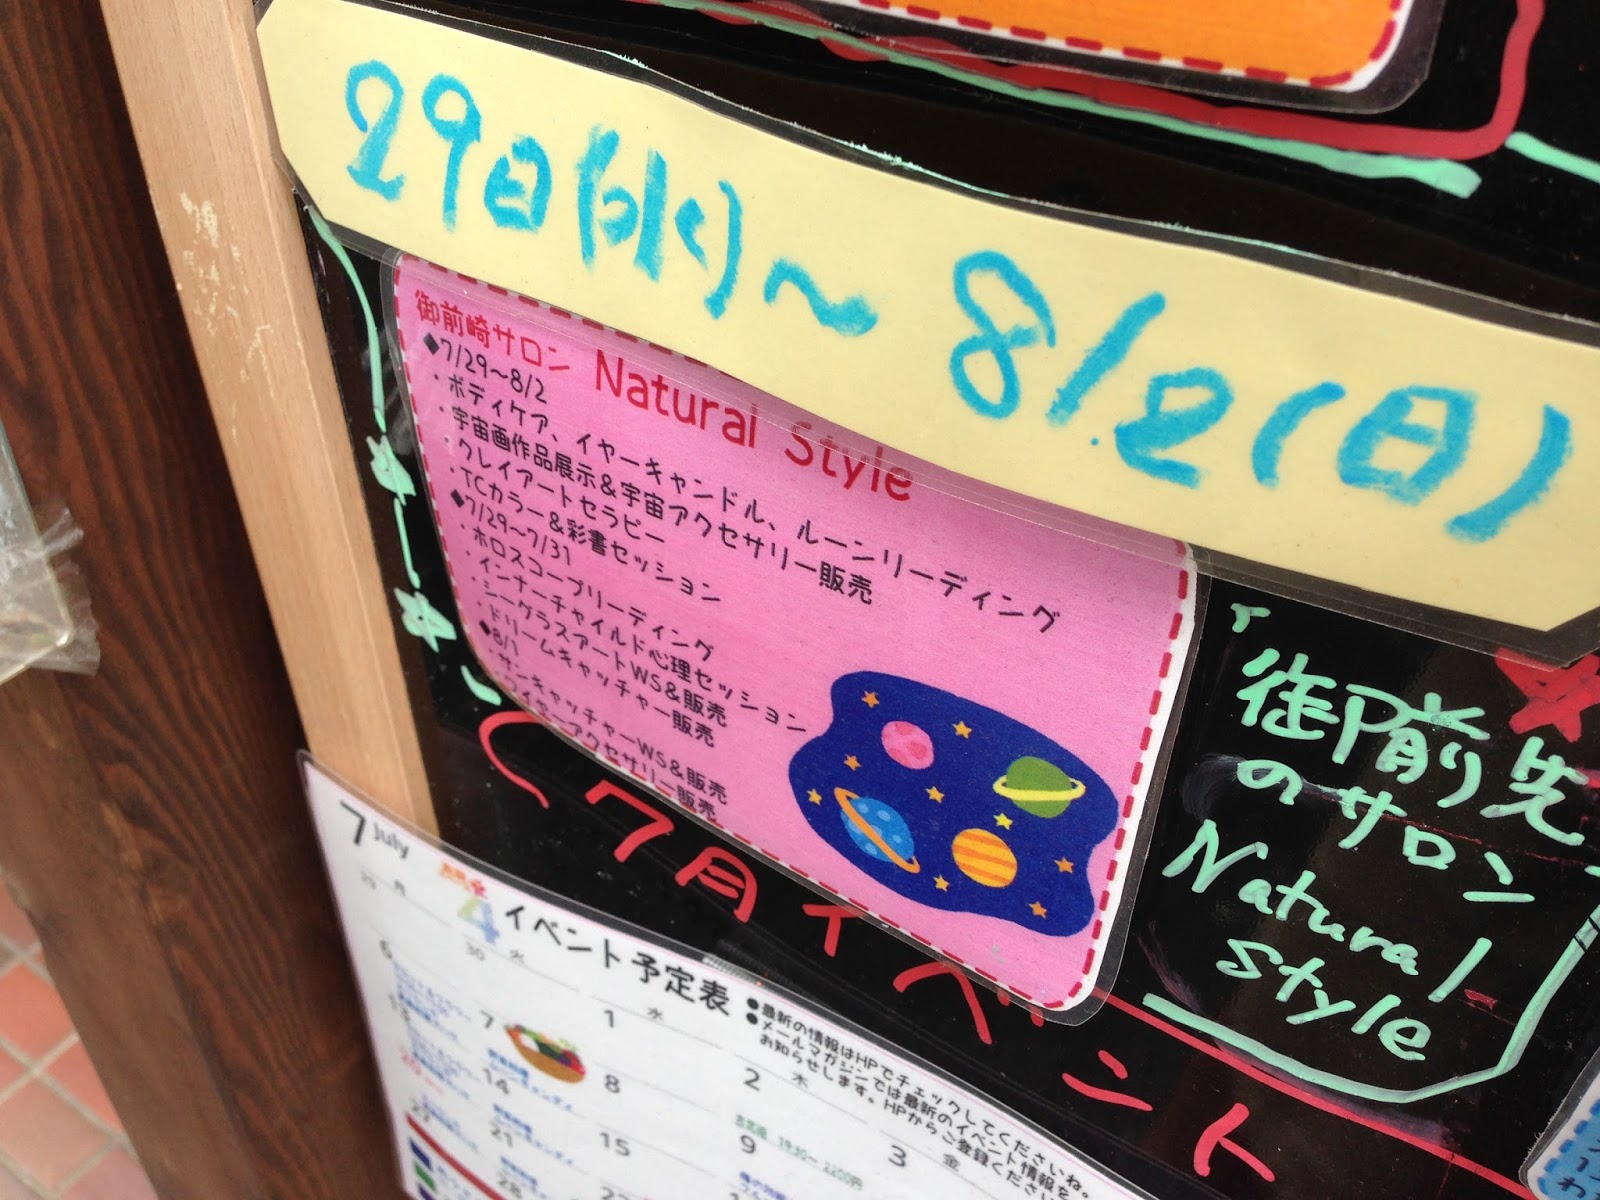 29日(水)～8/2(日)
御前崎サロン Natural Style
◆7/29～8/2
・ボディケア、イヤーキャンドル、ルーンリーディング
・宇宙画作品展示＆宇宙アクセサリー販売
・クレイアートセラピー
・TCカラー＆彩書セッション
◆7/29～7/31
・ホロスコープリーディング
・インナーチャイルド心理セッション
・シーグラスアートWS＆販売
・ドリームキャッチャー販売
◆8/1
・サンキャッチャーWS＆販売
・ワイヤーアクセサリー販売
御前先
のサロン
Natural
Style
7月イベント
7 July
イベント予定表
●最新の情報はHPでチェックしてくださいね。
●メールマガジンでは最新のイベント情報を
お知らせします。HPからご登録ください
29 月
30 火
1 水
2 木
3 金
6
7
8
9
14
15
21
28